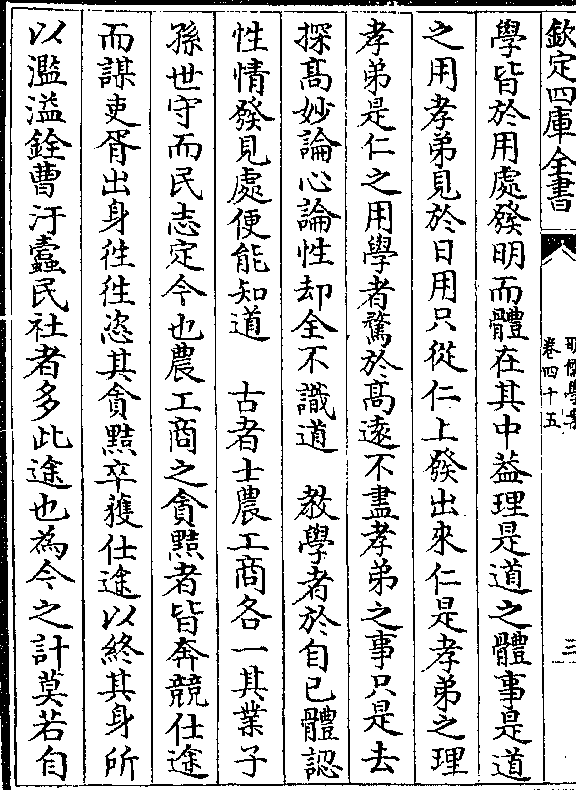 欽定四庫全書
明儒學案
卷四十五
三
學皆於用處發明而體在其中葢理是道之體事是道
之用孝弟見於日用只從仁上發出來仁是孝弟之理
孝弟是仁之用學者騖於髙逺不盡孝弟之事只是去
探髙妙論心論性却全不識道　教學者於自已體認
性情發見處便能知道　古者士農工商各一其業子
孫世守而民志定今也農工商之貪黠者皆奔競仕途
而謀吏胥出身徃徃恣其貪黠卒獲仕途以終其身所
以濫溢銓曹汙蠧民社者多此途也為今之計莫若自